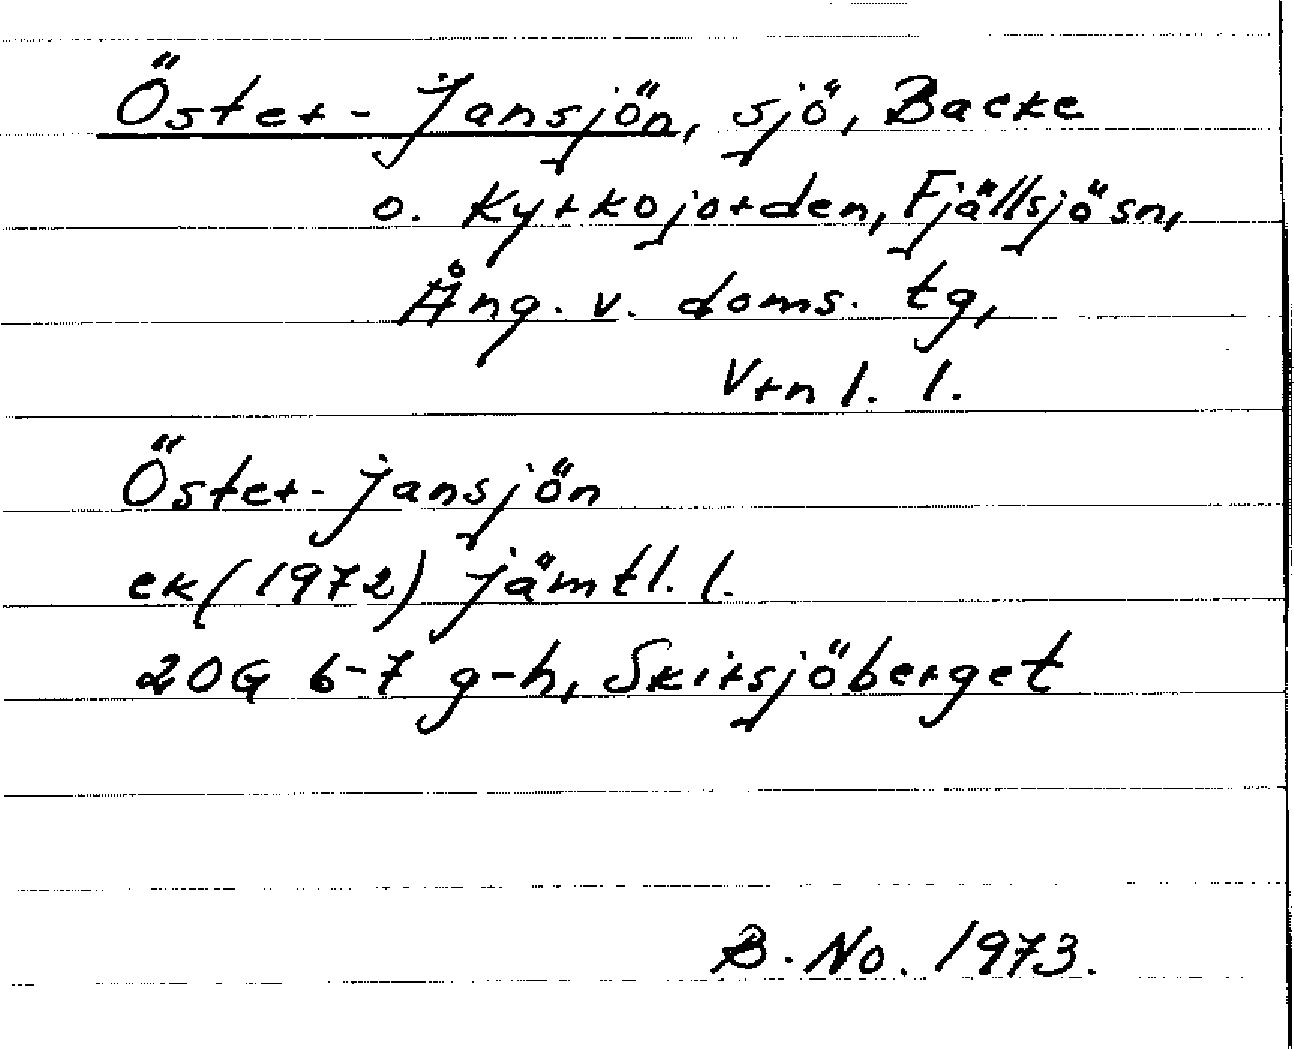 Öster-Jansjön, sjö, Backe
o. Kyrkojorden, Fjällsjö sn,
Ång. v. doms. tg,
Vrnl. l.
Öster-Jansjön
ek (1972) Jämtl. l.
20G 6-7 g-h, Skirsjöberget
B. No. 1973.